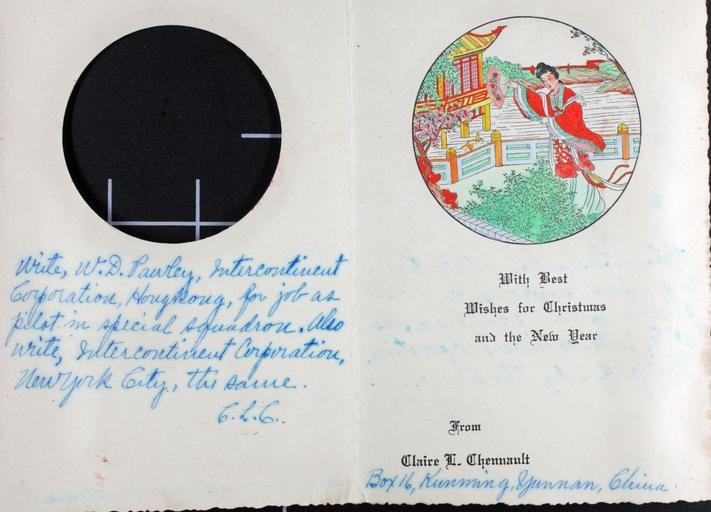 Write, W.D. Pawley, Intercontinent
Corporation, Hongkong, for job as
pilot in special squadron. Also
write, Intercontinent Corporation,
New York City, the same.
C.L.C.
With Best
Wishes for Christmas
and the New Year
From
Claire L. Chennault
Box 16, Kunming, Yunnan, China.